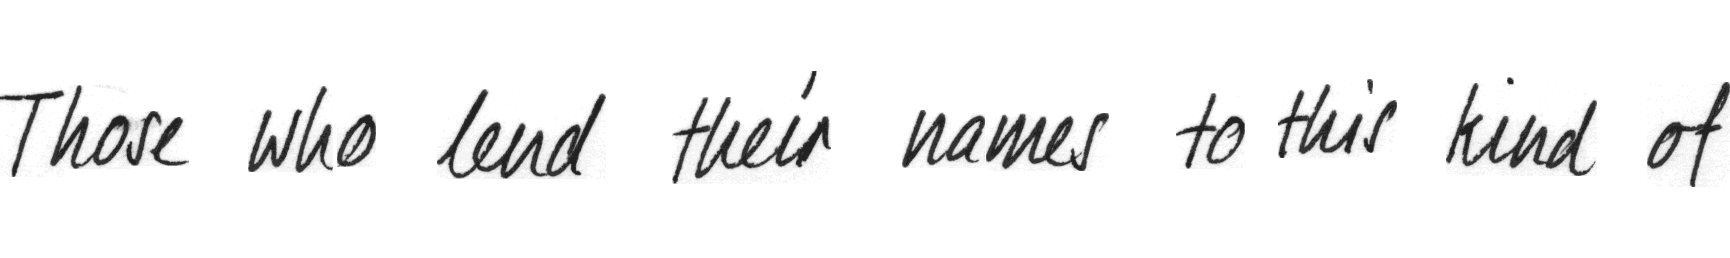 Those who lend their names to this kind of